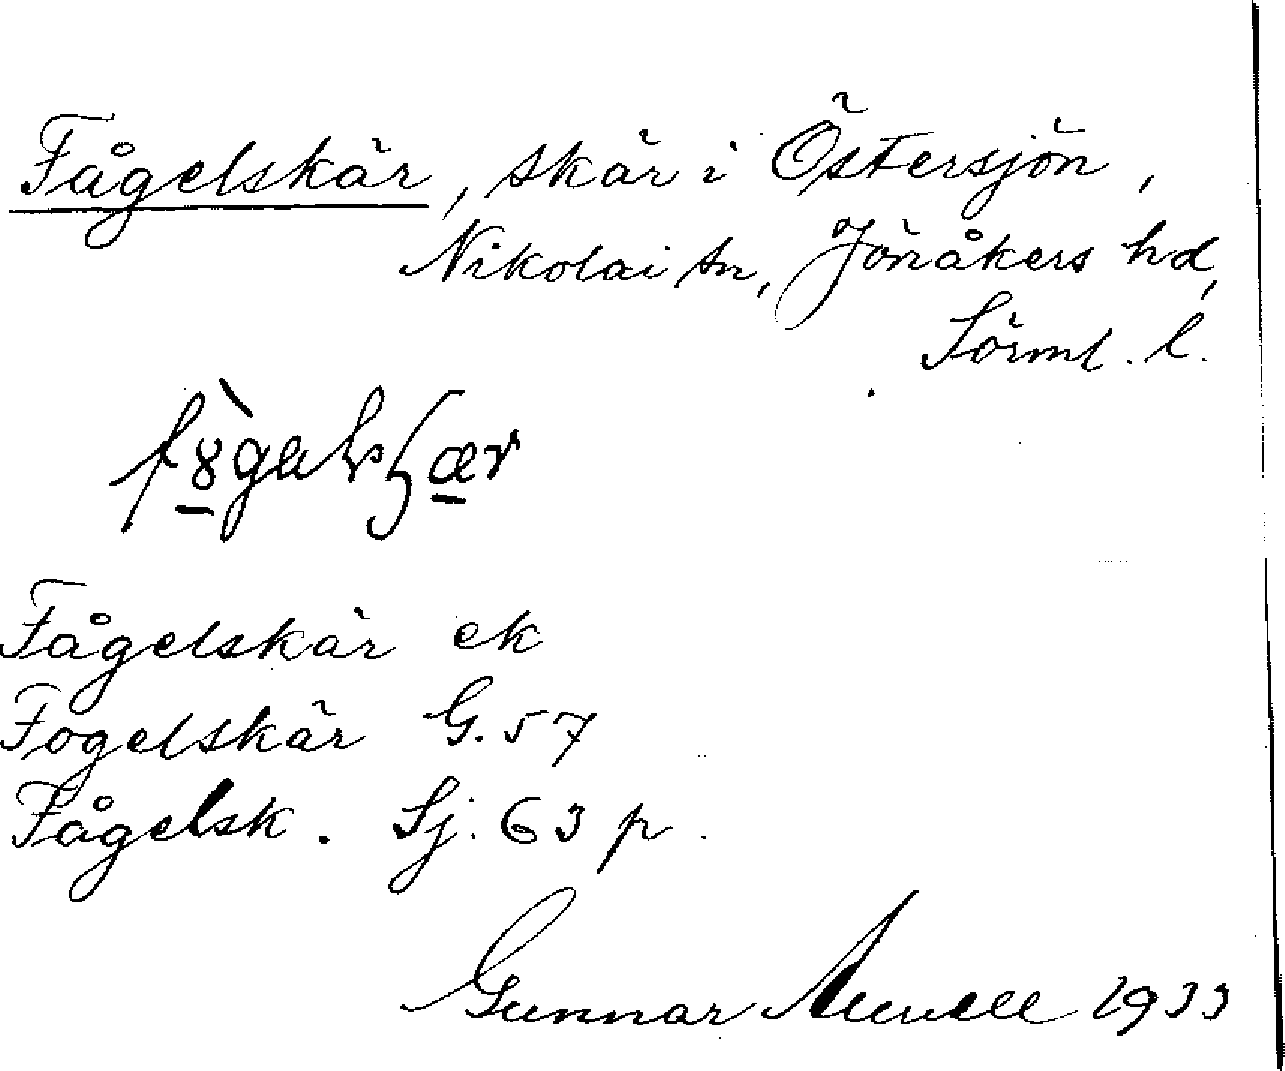 Fågelskär, skär i Östersjön,
Nikolai sn, Jönåkers hd,
Sörml. l.
Fågelskär ek
Fogelskär G. 57
Fågelsk. Sj. 63 p.
Gunnar 1933